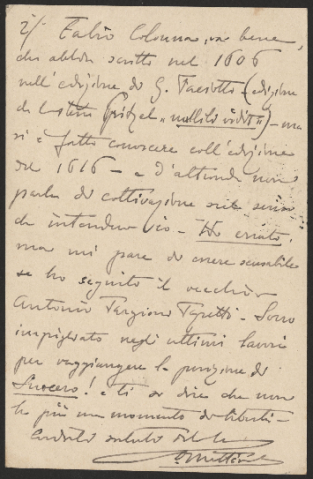 2/. Fabio Colonna, va bene,
che abbia scritto nel 1606
nell'edizione di G. Faciotto (edizione
che Pritzel "nullibi vidit") – ma
si è fatto conoscere coll'edizione
del 1616 – e d'altronde non
parla di coltivazione nel senso
che intendevo io – Ho errato,
ma mi pare di essere scusabile
se ho seguito il vecchio
Antonio Targioni Tozzetti – Sono
impegnato negli ultimi lavori
per raggiungere la posizione di
Suocero! e ti so dire che non
ho più un momento di libertà –
Cordiale saluto dal